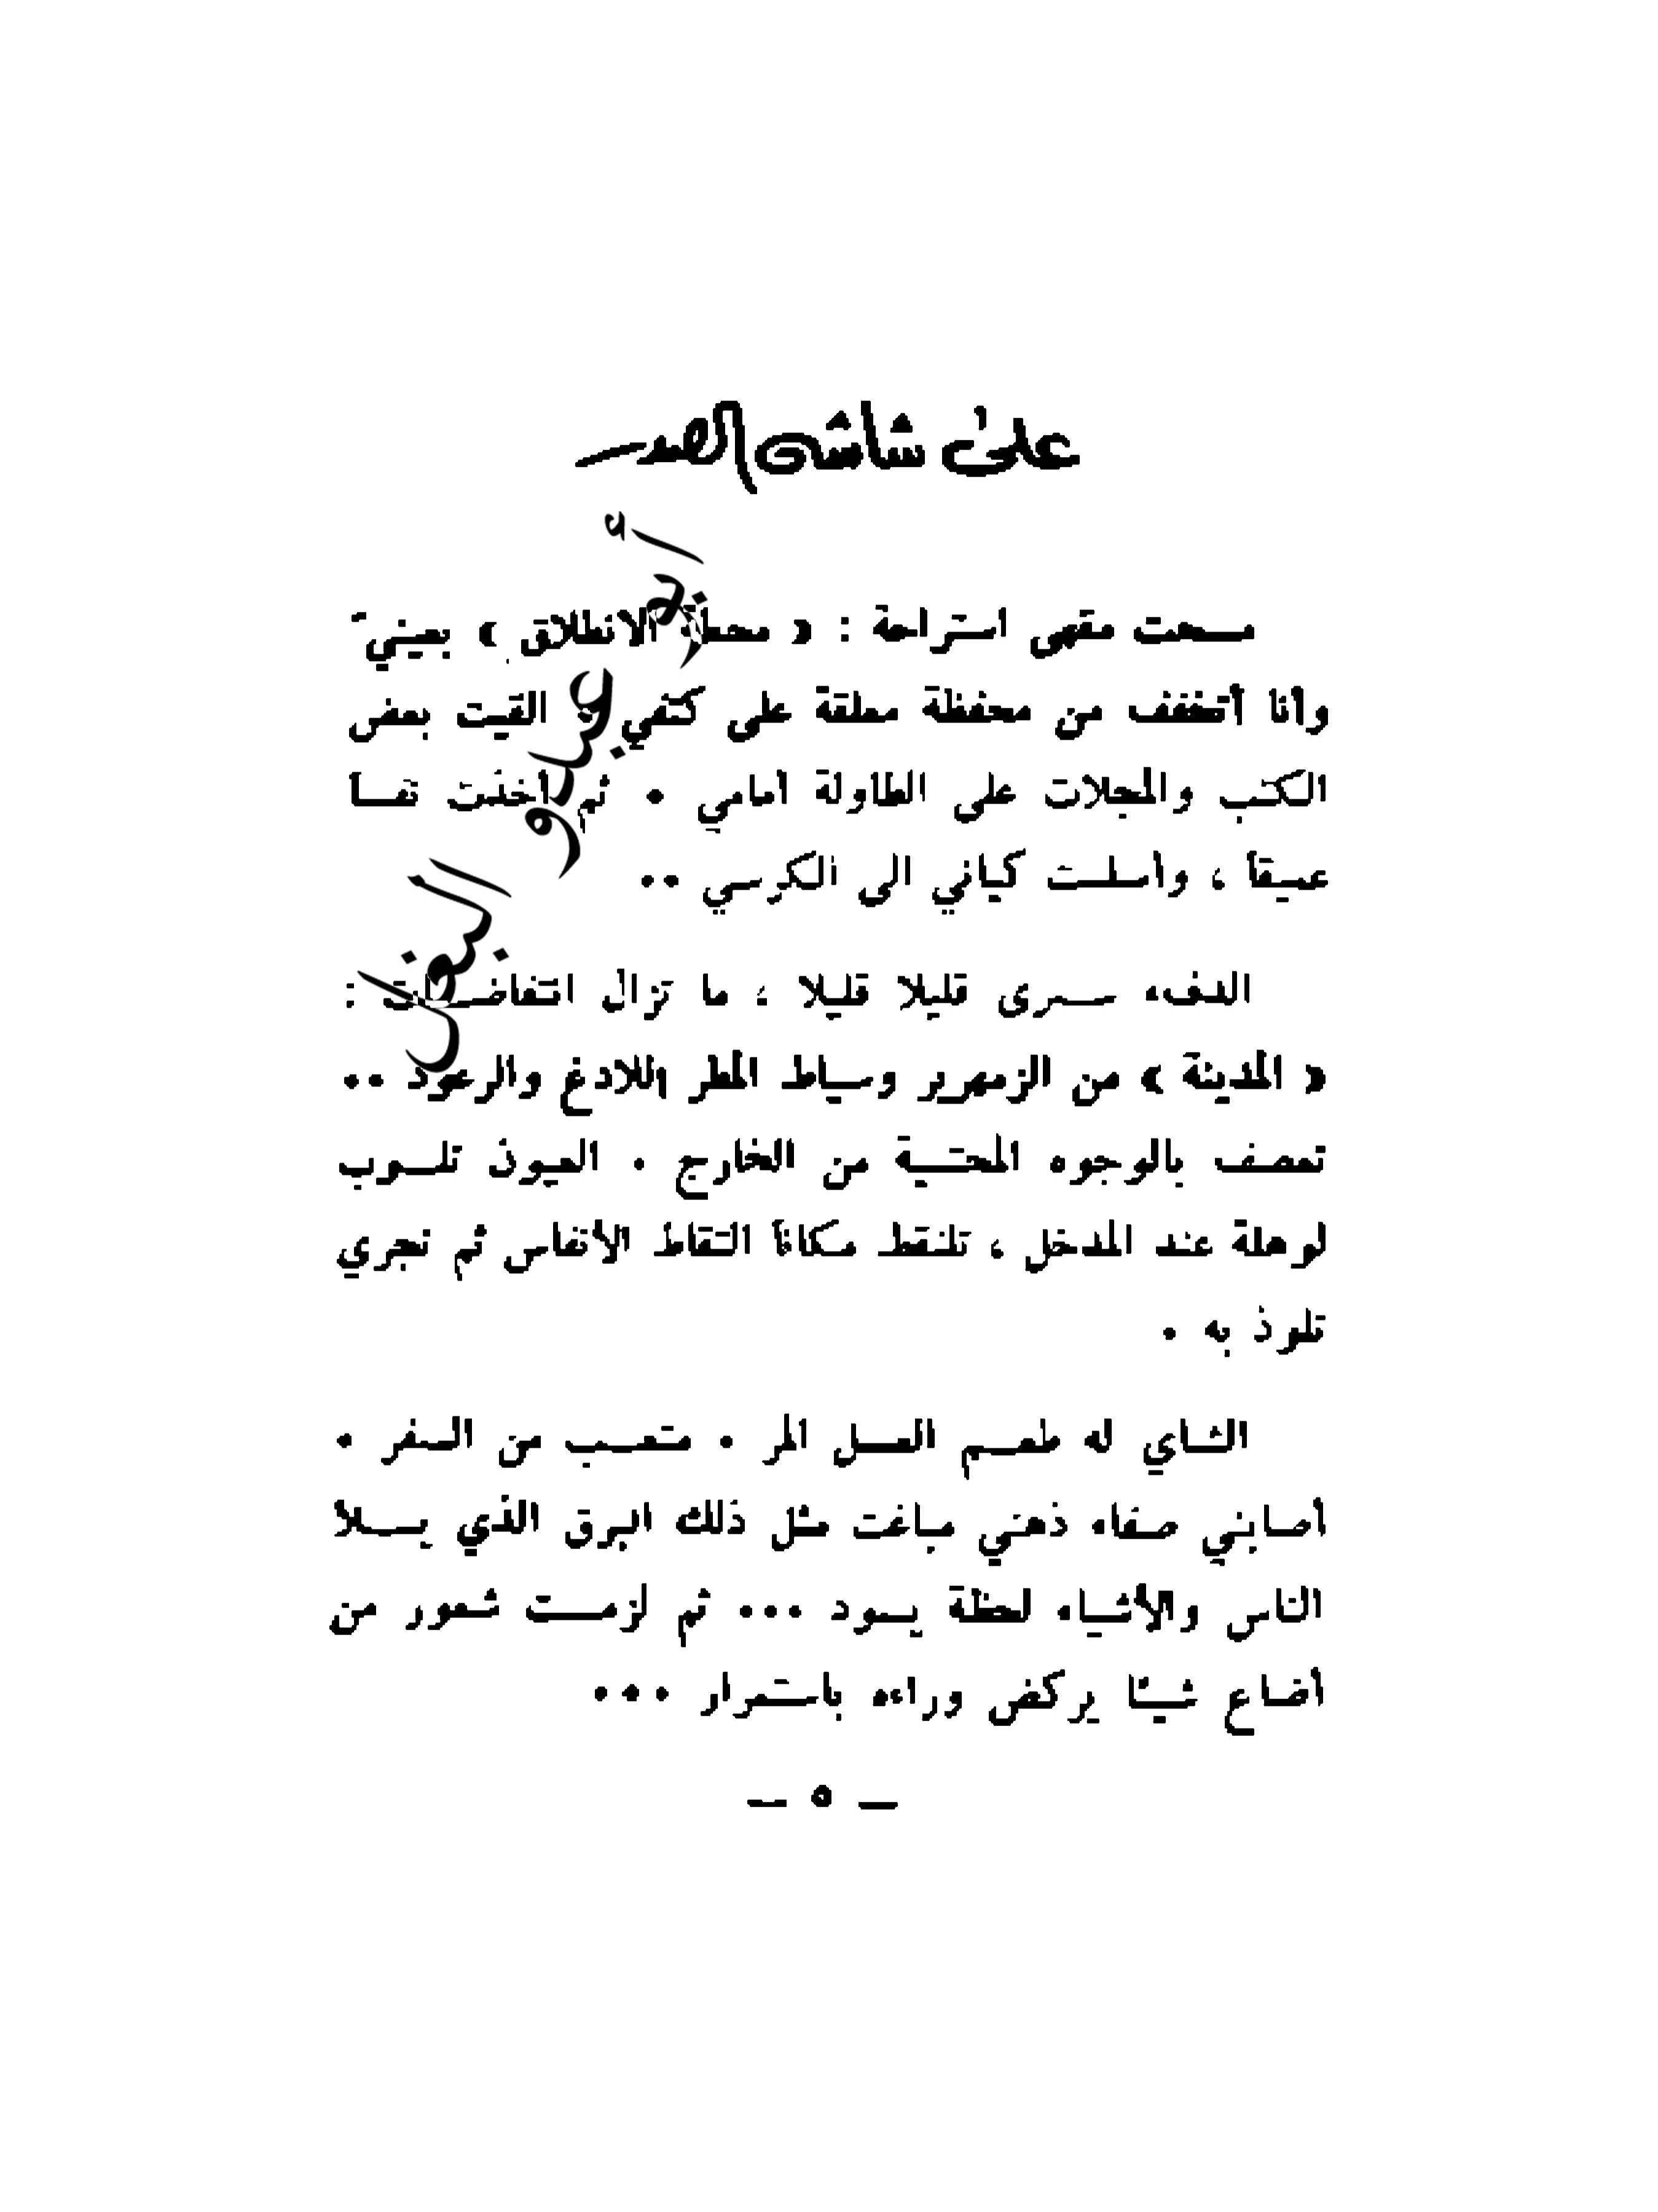 على شاشة الصدر
مسحت مقهى استراحة : « محطة الانطلاق » بعينيّ
وأنا أتخفف من محفظة معلقة على كتفي . القيت بعض
الكتب والمجلات على الطاولة أمامي . ثم أخذت نفسا
عميقاً ، وأسلمت كياني الى الكرسي ..
الدفء سرى قليلا قليلا ، ما تزال انتفاضات :
« المدينة » من الزمهرير وسياط المطر اللادغ والرعود ..
تعصف بالوجوه المحتمية من الخارج . العيون تلوب
لوهلة عند المدخل ، تلتقط مكاناً التقاط الأنفاس ثم تجري
تلوذ به .
الشاي له طعم العسل المر . متعب من السفر .
أصابني صفاء ذهني مباغت مثل ذلك البرق الذي يملأ
الناس والأشياء لحظة يسود ... ثم لزمت شعور من
أضاع شيئا يركض وراءه باستمرار ...
— ٥ —
أبو عبدو البغل